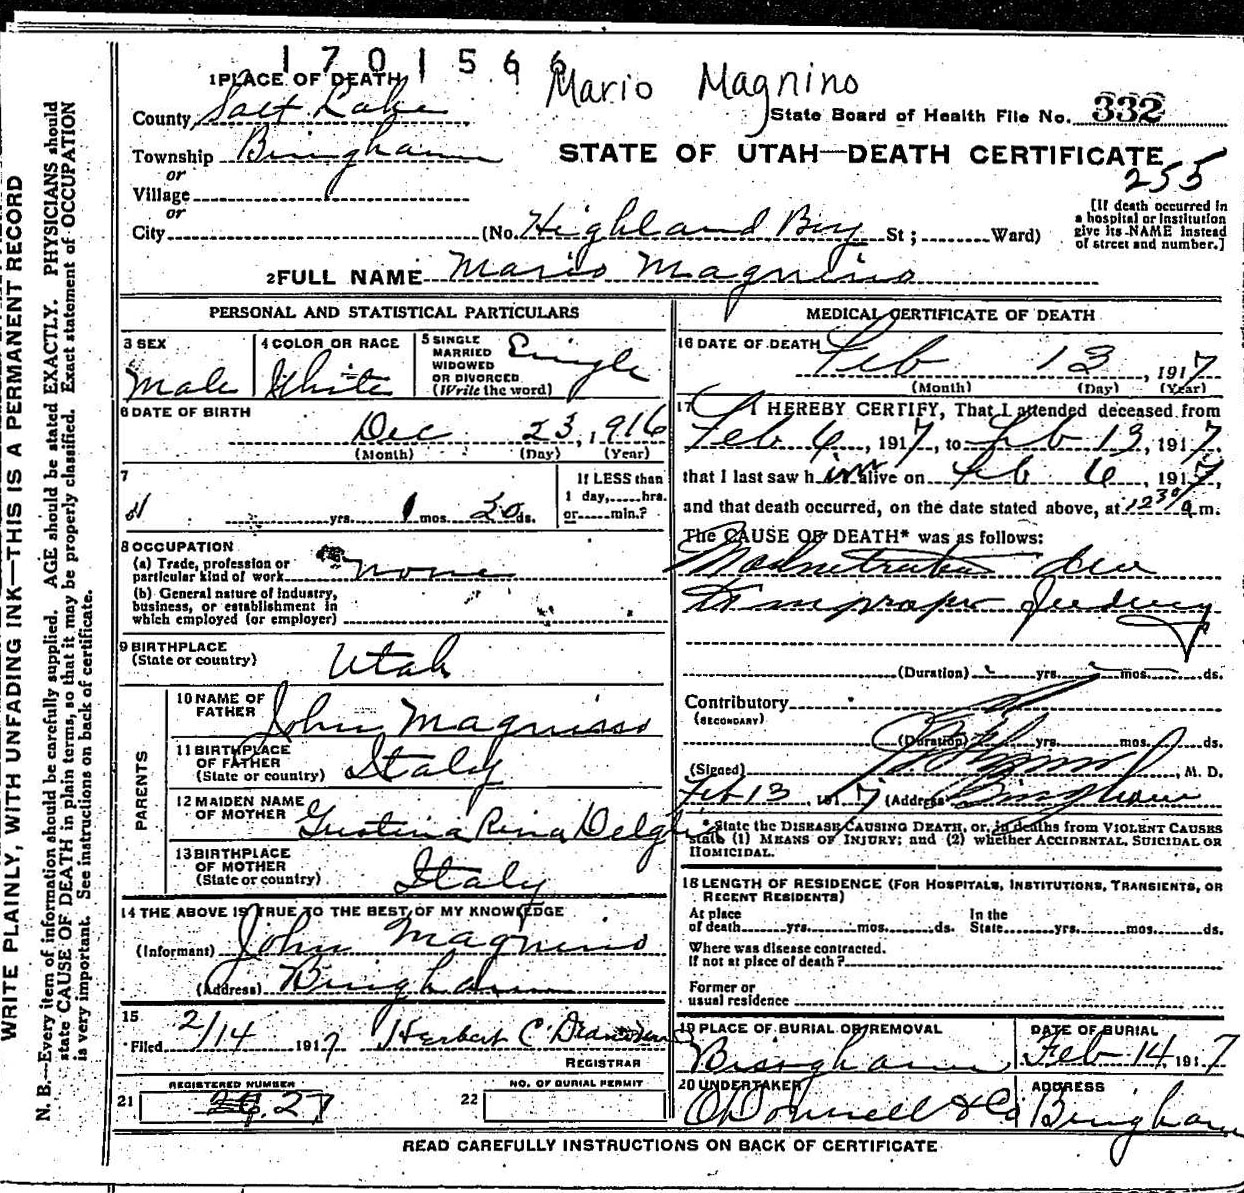 1701566
Mario Magnino
1 PLACE OF DEATH
County Salt Lake
State Board of Health File No. 332
Township Bingham
STATE OF UTAH—DEATH CERTIFICATE
255
or
Village
or
City (No. Highland Boy St; Ward)
[If death occurred in
a hospital or institution
give its NAME instead
of street and number.]
2 FULL NAME Mario Magnino
PERSONAL AND STATISTICAL PARTICULARS
3 SEX
Male
4 COLOR OR RACE
White
5 SINGLE
MARRIED
WIDOWED
OR DIVORCED
(Write the word)
Single
6 DATE OF BIRTH
Dec 23, 1916
(Month) (Day) (Year)
7
yrs. 1 mos. 20 ds.
If LESS than
1 day, hrs.
or min.?
8 OCCUPATION
(a) Trade, profession or
particular kind of work none
(b) General nature of industry,
business, or establishment in
which employed (or employer)
9 BIRTHPLACE
(State or country) Utah
PARENTS
10 NAME OF
FATHER John Magnino
11 BIRTHPLACE
OF FATHER
(State or country) Italy
12 MAIDEN NAME
OF MOTHER Gustina Rina
13 BIRTHPLACE
OF MOTHER
(State or country) Italy
14 THE ABOVE IS TRUE TO THE BEST OF MY KNOWLEDGE
(Informant) John Magnino
(Address) Bingham
15
Filed 2/14 1917 Herbert C.
REGISTRAR
REGISTERED NUMBER
21 27
NO. OF BURIAL PERMIT
22
MEDICAL CERTIFICATE OF DEATH
16 DATE OF DEATH
Feb 13, 1917
(Month) (Day) (Year)
17 I HEREBY CERTIFY, That I attended deceased from
Feb 6, 1917, to Feb 13, 1917,
that I last saw him alive on Feb 6, 1917,
and that death occurred, on the date stated above, at 12 30 a m.
The CAUSE OF DEATH* was as follows:
Malnutrition due
to improper feeding
(Duration) yrs. mos. ds.
Contributory
(SECONDARY)
(Duration) yrs. mos. ds.
(Signed) , M. D.
Feb 13, 1917 (Address) Bingham
* State the DISEASE CAUSING DEATH, or, in deaths from VIOLENT CAUSES
state (1) MEANS OF INJURY; and (2) whether ACCIDENTAL, SUICIDAL OR
HOMICIDAL.
18 LENGTH OF RESIDENCE (FOR HOSPITALS, INSTITUTIONS, TRANSIENTS, OR
RECENT RESIDENTS)
At place
of death yrs. mos. ds.
In the
State yrs. mos. ds.
Where was disease contracted.
If not at place of death?
Former or
usual residence
19 PLACE OF BURIAL OR REMOVAL
Bingham
DATE OF BURIAL
Feb 14, 1917
20 UNDERTAKER
O'Donnell & Co
ADDRESS
Bingham
READ CAREFULLY INSTRUCTIONS ON BACK OF CERTIFICATE
WRITE PLAINLY, WITH UNFADING INK—THIS IS A PERMANENT RECORD
N. B.—Every item of information should be carefully supplied. AGE should be stated EXACTLY. PHYSICIANS should
state CAUSE OF DEATH in plain terms, so that it may be properly classified. Exact statement of OCCUPATION
is very important. See instructions on back of certificate.